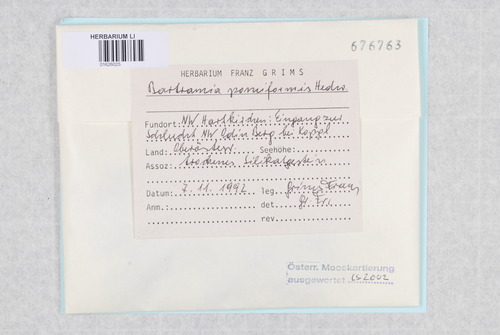 HERBARIUM LI
01626025
676763
HERBARIUM FRANZ GRIMS
Bartramia pomiformis Hedw.
Fundort: NW Hartkirchen: Eingang zur
Schlucht NW
Land: Oberösterr. Seehöhe:
Assoz: trockenes Silikatgestein
Datum: 7.11.1992 leg. Grims Franz
Anm.: det.
rev.
Österr. Mooskartierung
ausgewertet